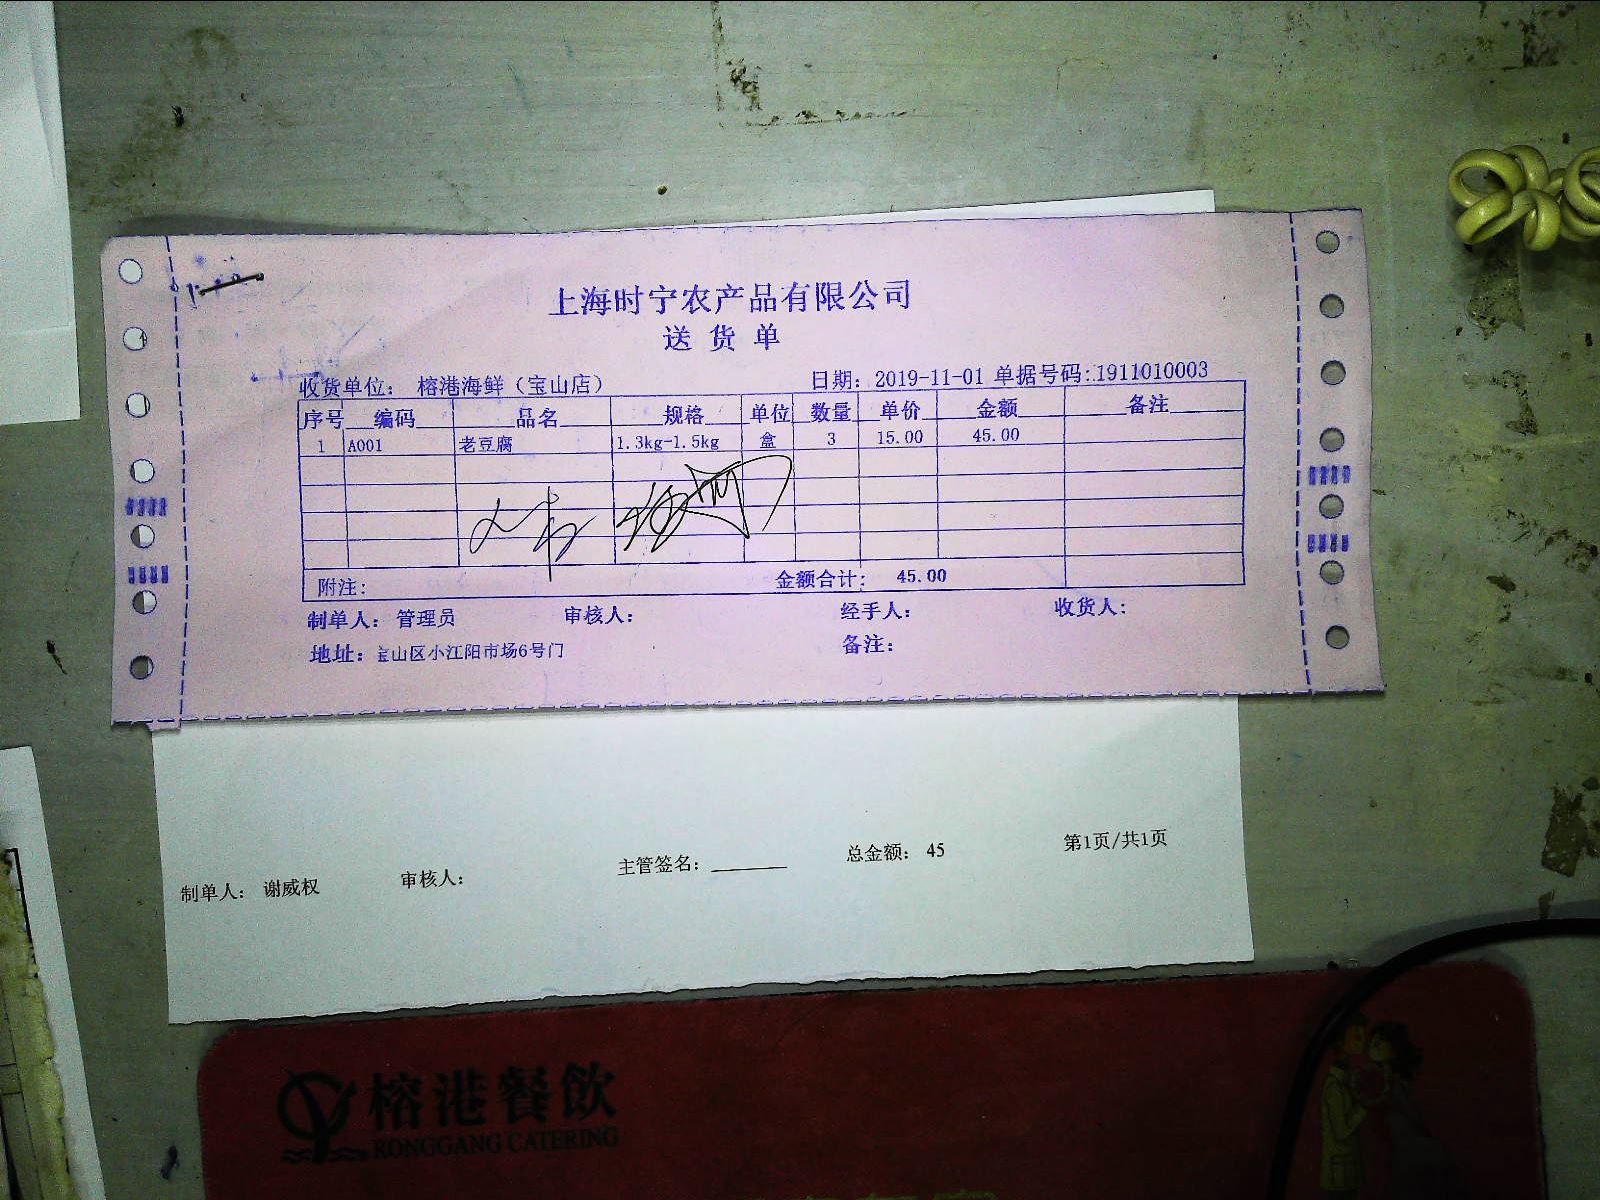 上海时宁农产品有限公司
送 货 单
收货单位: 榕港海鲜（宝山店） 日期: 2019-11-01 单据号码:1911010003
序号 编码 品名 规格 单位 数量 单价 金额 备注
1 A001 老豆腐 1.3kg-1.5kg 盒 3 15.00 45.00
附注: 金额合计: 45.00
制单人: 管理员 审核人: 经手人: 收货人:
地址: 宝山区小江阳市场6号门 备注:
制单人: 谢威权 审核人: 主管签名: 总金额: 45 第1页/共1页
榕港餐飲
RONGGANG CATERING